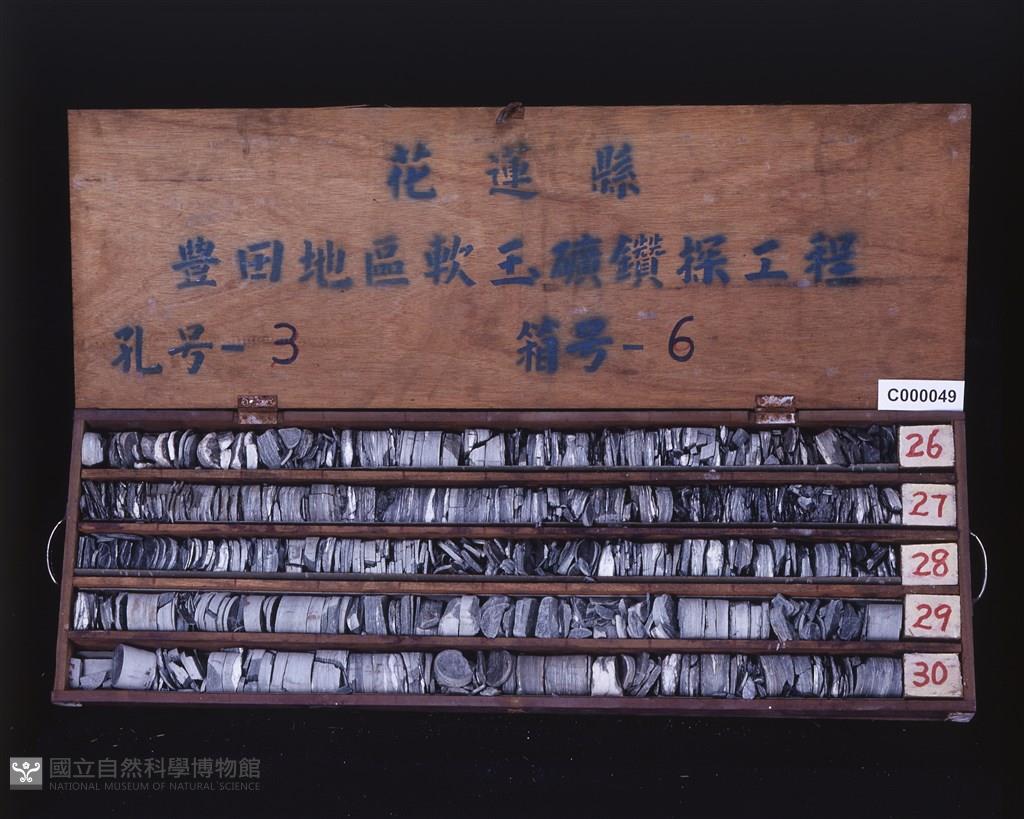 花蓮縣
豐田地區軟玉礦鑽探工程
孔号-3 箱号-6
C000049
26
27
28
29
30
國立自然科學博物館
NATIONAL MUSEUM OF NATURAL SCIENCE